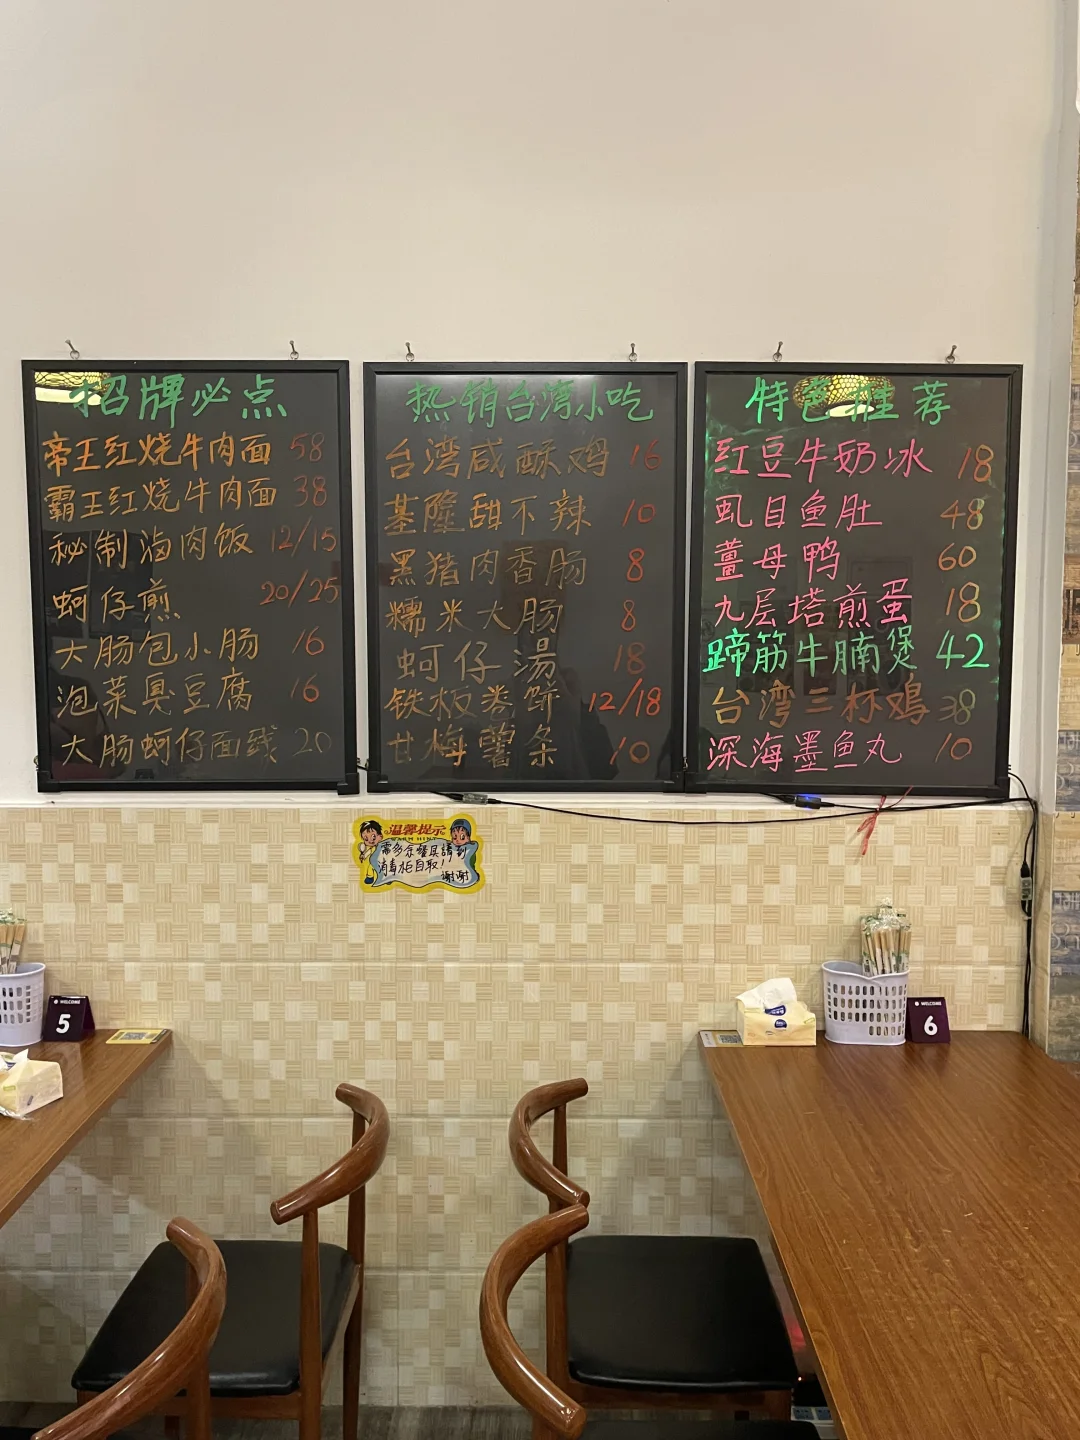 招牌必点
帝王红烧牛肉面 58
霸王红烧牛肉面 38
秘制卤肉饭 12/15
蚵仔煎 20/25
大肠包小肠 16
泡菜臭豆腐 16
大肠蚵仔面线 20
热销台湾小吃
台湾咸酥鸡 16
基隆甜不辣 10
黑猪肉香肠 8
糯米大肠 8
蚵仔湯 18
铁板卷饼 12/18
甘梅薯条 10
特色推荐
红豆牛奶冰 18
虱目鱼肚 48
薑母鸭 60
九层塔煎蛋 18
蹄筋牛腩煲 42
台湾三杯鸡 38
深海墨鱼丸 10
温馨提示
WARM HINT
需多余餐具請到
消毒柜自取！
谢谢
WELCOME
5
WELCOME
6